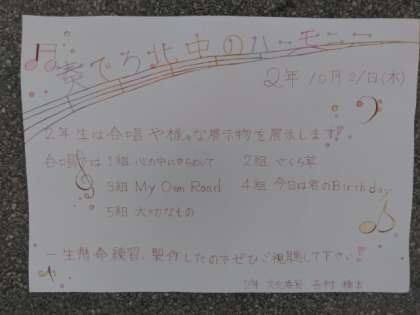 奏でろ北中のハーモニー
2年 10月21日(木)
2年生は合唱や様々な展示物を展示します!!
合唱では 1組 心の中にきらめいて 2組 さくら草
3組 My Own Road 4組 今日は君のBirthday
5組 大切なもの
一生懸命練習、製作したのでぜひご視聴して下さい!!
2年 文化委員